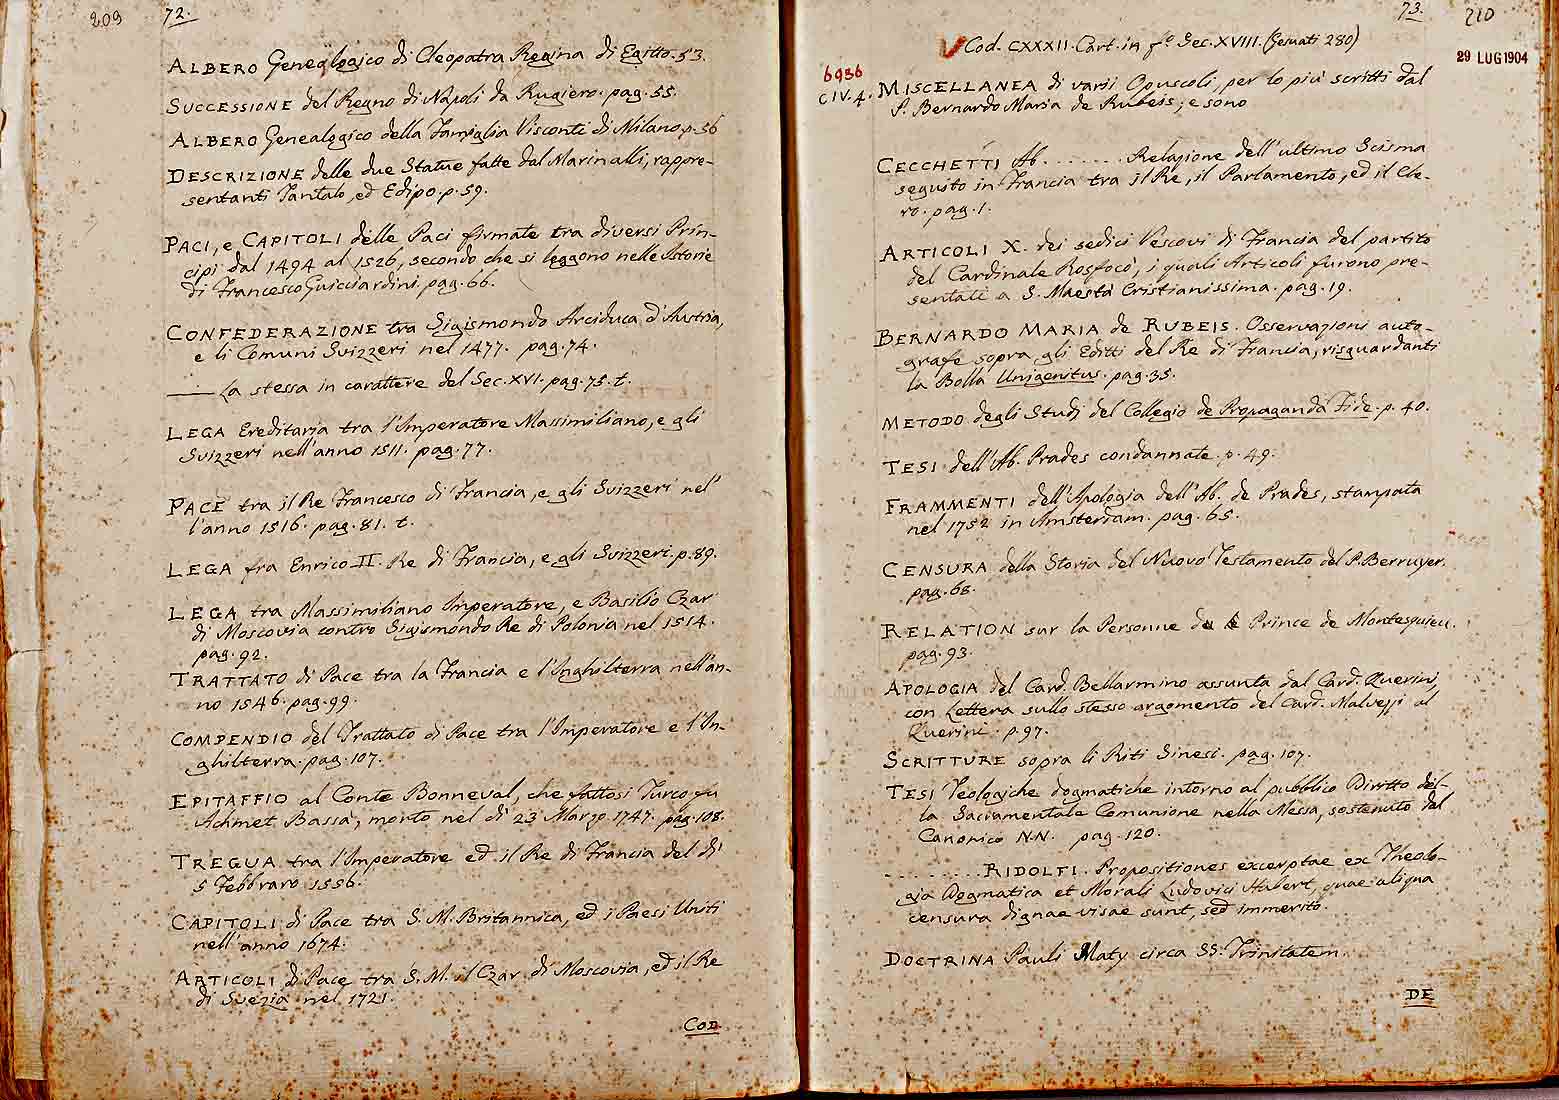 209 72.
ALBERO Genealogico di Cleopatra Regina di Egitto. 53.
SUCCESSIONE del Regno di Napoli da Rugiero. pag. 55.
ALBERO Genealogico della Famiglia Visconti di Milano p. 56
DESCRIZIONE delle due Statue fatte dal Marinalli, rappre-
sentanti Tantalo, ed Edipo. p. 59.
PACI, e CAPITOLI delle Paci firmate tra diversi Prin-
cipi dal 1494 al 1526, secondo che si leggono nelle Istorie
di Francesco Guicciardini. pag. 66.
CONFEDERAZIONE tra Sigismondo Arciduca d'Austria,
e li Comuni Svizzeri nel 1477. pag. 74.
—— La stessa in carattere del Sec. XVI. pag. 75. t.
LEGA Ereditaria tra l'Imperatore Massimiliano, e gli
Svizzeri nell'anno 1511. pag. 77.
PACE tra il Re Francesco di Francia, e gli Svizzeri nel'
l'anno 1516. pag. 81. t.
LEGA fra Enrico II. Re di Francia, e gli Svizzeri. p. 89.
LEGA tra Massimiliano Imperatore, e Basilio Czar
di Moscovia contro Sigismondo Re di Polonia nel 1514.
pag. 92.
TRATTATO di Pace tra la Francia e l'Inghilterra nell'an-
no 1546. pag. 99.
COMPENDIO del Trattato di Pace tra l'Imperatore e l'In-
ghilterra. pag. 107.
EPITAFFIO al Conte Bonneval, che fattosi Turco fu
Achmet Bassà, morto nel dì 23 Marzo 1747. pag. 108.
TREGUA tra l'Imperatore ed il Re di Francia del dì
5 Febbraro 1556.
CAPITOLI di Pace tra S. M. Britannica, ed i Paesi Uniti
nell'anno 1674.
ARTICOLI di Pace tra S. M. il Czar di Moscovia, ed il Re
di Svezia nel 1721.
COD
73. 210
29 LUG 1904
Cod. CXXXII. Cart. in fo. Sec. XVIII. (Gesuati 280)
6936
CIV. 4.
MISCELLANEA di varii Opuscoli, per lo più scritti dal
P. Bernardo Maria de Rubeis; e sono
CECCHETTI Ab. . . . . . . . Relazione dell'ultimo Scisma
seguito in Francia tra il Re, il Parlamento, ed il Cle-
ro. pag. 1.
ARTICOLI X. dei sedici Vescovi di Francia del partito
del Cardinale Rosfocò, i quali Articoli furono pre-
sentati a S. Maestà Cristianissima. pag. 19.
BERNARDO MARIA de RUBEIS. Osservazioni auto-
grafe sopra gli Editti del Re di Francia, risguardanti
la Bolla Unigenitus. pag. 35.
METODO degli Studi del Collegio de Propaganda Fide. p. 40.
TESI dell'Ab. Prades condannate. p. 49.
FRAMMENTI dell'Apologia dell'Ab. de Prades, stampata
nel 1752 in Amsterdam. pag. 65.
CENSURA della Storia del Nuovo Testamento del P. Berruyer.
pag. 68.
RELATION sur la Personne du Prince de Montesquieu.
pag. 93.
APOLOGIA del Card. Bellarmino assunta dal Card. Querini,
con Lettera sullo stesso argomento del Card. Malvezzi al
Querini. p. 97.
SCRITTURE sopra li Riti Sinesi. pag. 107.
TESI Teologiche dogmatiche intorno al pubblico Diritto del-
la Sacramentale Comunione nella Messa, sostenuto dal
Canonico N.N. pag. 120.
. . . . . . . . . RIDOLFI. Propositiones excerptae ex Theolo-
gia Dogmatica et Morali Ludovici Habert, quae aliqua
censura dignae visae sunt, sed immerito.
DOCTRINA Pauli Maty circa SS. Trinitatem.
DE